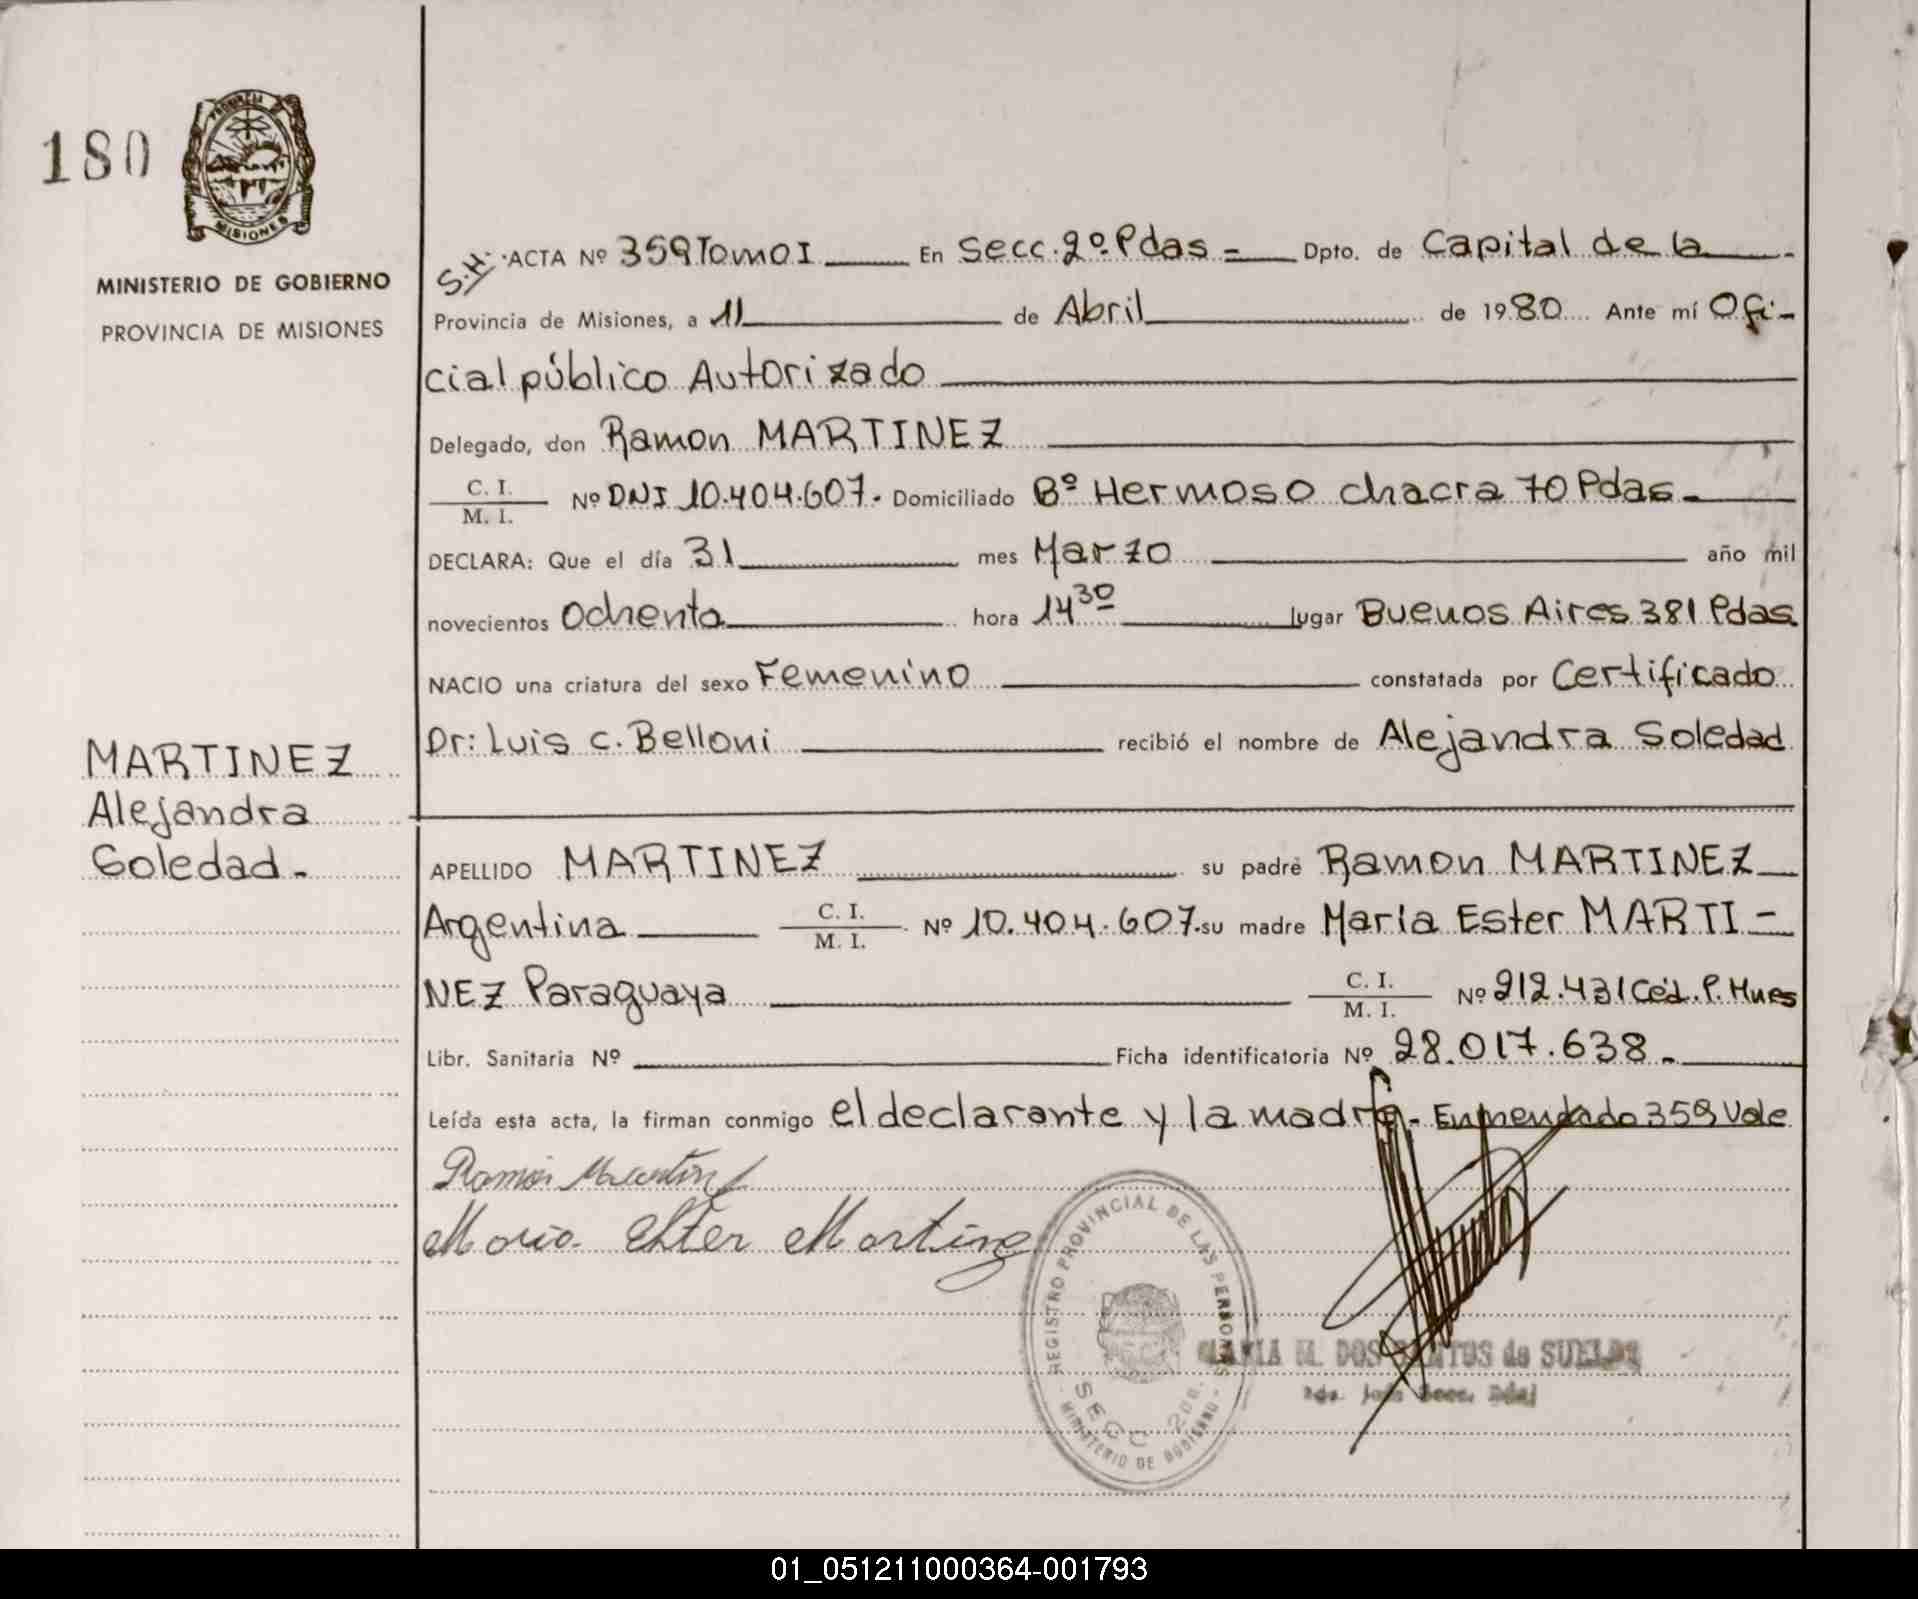 180
PROVINCIA
MISIONES
MINISTERIO DE GOBIERNO
PROVINCIA DE MISIONES
S.H. ACTA Nº 359 Tomo I En Secc. 2º Pdas - Dpto. de Capital de la
Provincia de Misiones, a 11 de Abril de 1980 Ante mí Ofi-
cial público Autorizado
Delegado, don Ramon MARTINEZ
C. I.
M. I. Nº DNI 10.404.607. Domiciliado Bº Hermoso chacra 70 Pdas -
DECLARA: Que el día 31 mes Marzo año mil
novecientos Ochenta hora 14 30 lugar Buenos Aires 381 Pdas
NACIO una criatura del sexo Femenino constatada por Certificado
Dr: Luis C. Belloni recibió el nombre de Alejandra Soledad
MARTINEZ
Alejandra
Soledad -
APELLIDO MARTINEZ su padre Ramon MARTINEZ
Argentina C. I.
M. I. Nº 10.404.607. su madre Maria Ester MARTI -
NEZ Paraguaya C. I.
M. I. Nº 212.431 Céd. P. Mnes
Libr. Sanitaria Nº Ficha identificatoria Nº 28.017.638 -
Leída esta acta, la firman conmigo el declarante y la madre - Enmendado 359 Vale
Ramón Martinez
Maria Ester Martinez
REGISTRO PROVINCIAL DE LAS PERSONAS
SECC 2da.
MINISTERIO DE GOBIERNO
MARIA M. DOS SANTOS de SUELDO
01_051211000364-001793